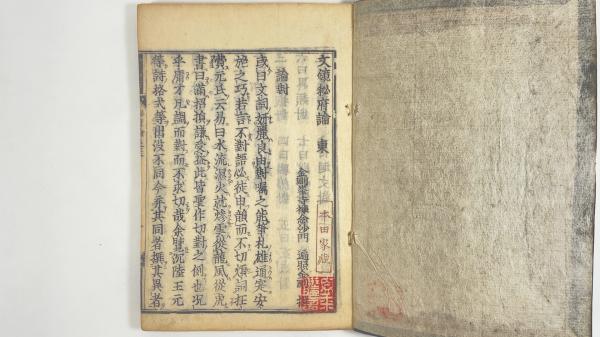 文鏡秘府論 東
金剛峯寺禪念沙門 遍照金剛 撰
論對
或曰文詞妍麗良由對囑之能筆札雄通寔安
施之巧若言不對語必徒申韻而不切煩詞枉
費元氏云易曰水流濕火就燥雲從龍風從虎
書曰滿招損謙受益此皆聖作切對之例也況
乎庸才凡調而對而不求切哉余覽沈陸王元
等詩格式等出沒不同今弃其同者撰其異者
本田家藏